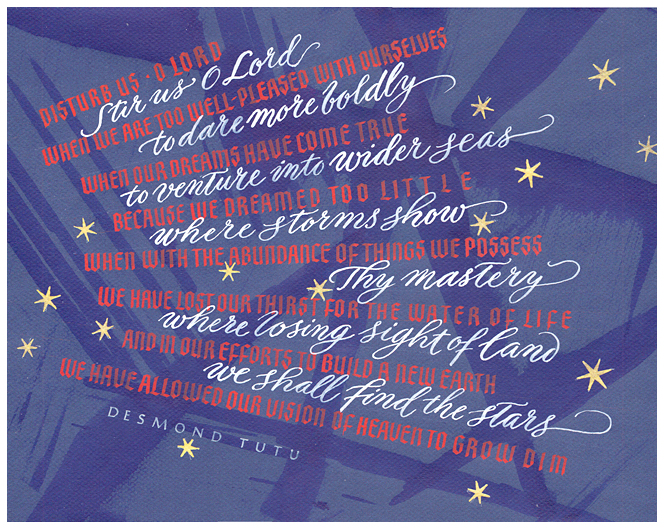 DISTURB US · O LORD
Stir us O Lord
WHEN WE ARE TOO WELL-PLEASED WITH OURSELVES
to dare more boldly
WHEN OUR DREAMS HAVE COME TRUE
to venture into wider seas
BECAUSE WE DREAMED TOO LITTLE
where storms show
WHEN WITH THE ABUNDANCE OF THINGS WE POSSESS
Thy mastery
WE HAVE LOST OUR THIRST FOR THE WATER OF LIFE
where losing sight of land
AND IN OUR EFFORTS TO BUILD A NEW EARTH
we shall find the stars
WE HAVE ALLOWED OUR VISION OF HEAVEN TO GROW DIM
DESMOND TUTU